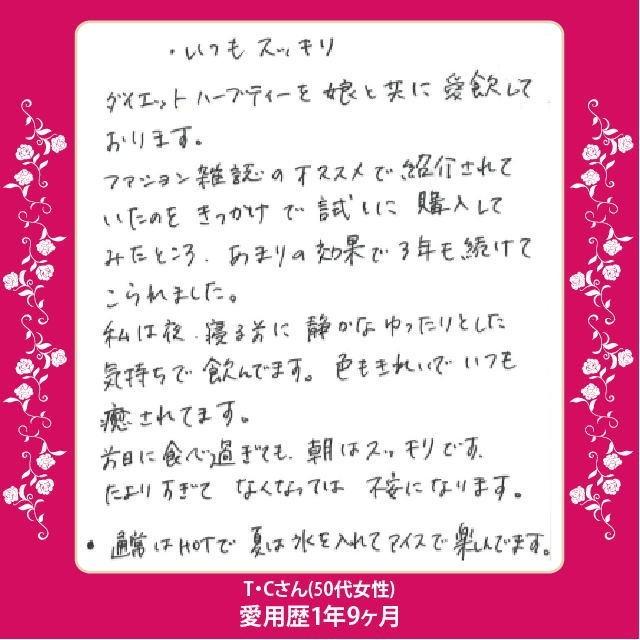 ・いつもスッキリ
ダイエットハーブティーを娘と共に愛飲して
おります。
ファッション雑誌のオススメで紹介されて
いたのをきっかけで試しに購入して
みたところ、あまりの効果で3年も続けて
こられました。
私は夜、寝る前に静かなゆったりとした
気持ちで飲んでます。色もきれいでいつも
癒されてます。
前日に食べ過ぎても、朝はスッキリです、
たよりすぎてなくなっては不安になります。
・通常はHOTで夏は氷を入れてアイスで楽しんでます。
T・Cさん(50代女性)
愛用歴1年9ヶ月